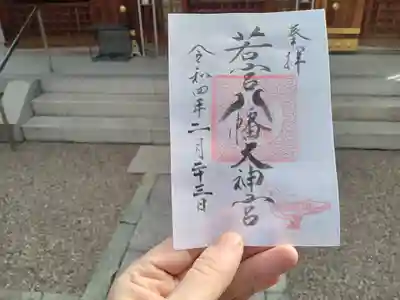 奉拝
若宮八幡天神宮
令和四年二月二十三日